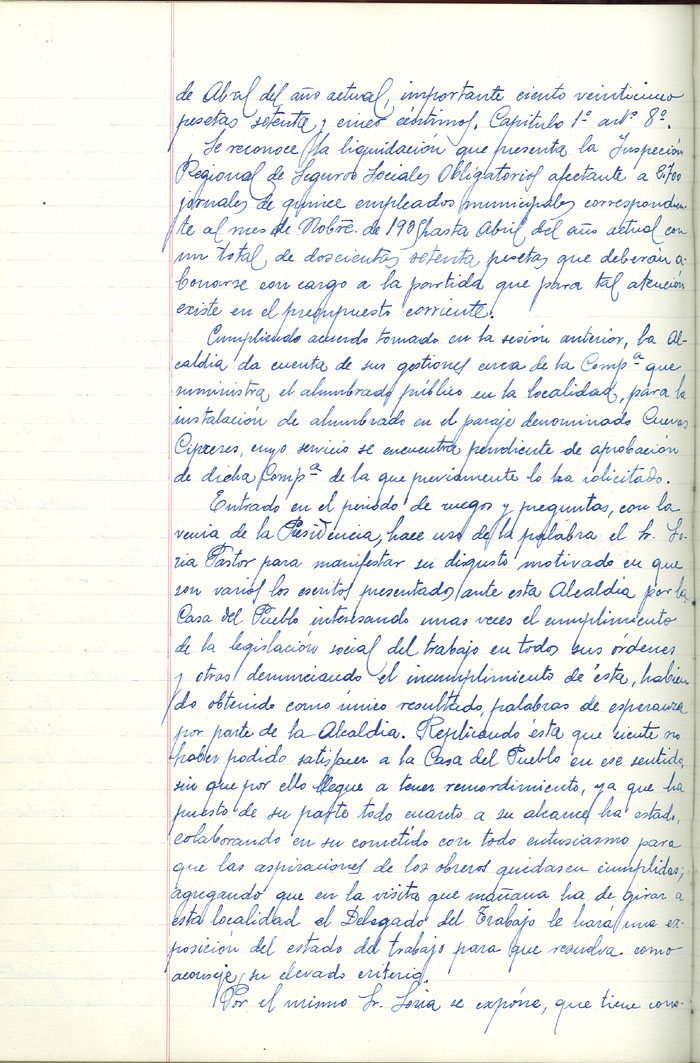 de Abril del año actual, importante ciento veinticinco
pesetas setenta y cinco céntimos. Capítulo 1º artº 8º.
Se reconoce la liquidación que presenta la Inspección
Regional de Seguros Sociales Obligatorios afectante a 2.700
jornales de quince empleados municipales correspondien-
te al mes de Nobre. de hasta Abril del año actual con
un total de doscientas setenta pesetas que deberán a-
bonarse con cargo a la partida que para tal atención
existe en el presupuesto corriente.
Cumpliendo acuerdo tomado en la sesión anterior, la Al-
caldía da cuenta de sus gestiones cerca de la Compª que
suministra el alumbrado público en la localidad, para la
instalación de alumbrado en el paraje denominado Cuevas
Cipreres, cuyo servicio se encuentra pendiente de aprobación
de dicha Compª de la que previamente lo ha solicitado.
Entrado en el periodo de ruegos y preguntas, con la
venia de la Presidencia, hace uso de la palabra el Sr. So-
ria Pastor para manifestar su disgusto motivado en que
son varios los escritos presentados ante esta Alcaldía por la
Casa del Pueblo interesando unas veces el cumplimiento
de la legislación social del trabajo en todos sus órdenes
y otras denunciando el incumplimiento de ésta, habien-
do obtenido como único resultado, palabras de esperanza
por parte de la Alcaldia. Replicando ésta que siente no
haber podido satisfacer a la Casa del Pueblo en ese sentido,
sin que por ello llegue a tener remordimiento, ya que ha
puesto de su parte todo cuanto a su alcance ha estado,
colaborando en su cometido con todo entusiasmo para
que las aspiraciones de los obreros quedasen cumplidas;
agregando que en la visita que mañana ha de girar a
esta localidad el Delegado del Trabajo le hará una ex-
posición del estado del trabajo para que resuelva como
aconseje su elevado criterio.
Por el mismo Sr. Soria se expone, que tiene cono-